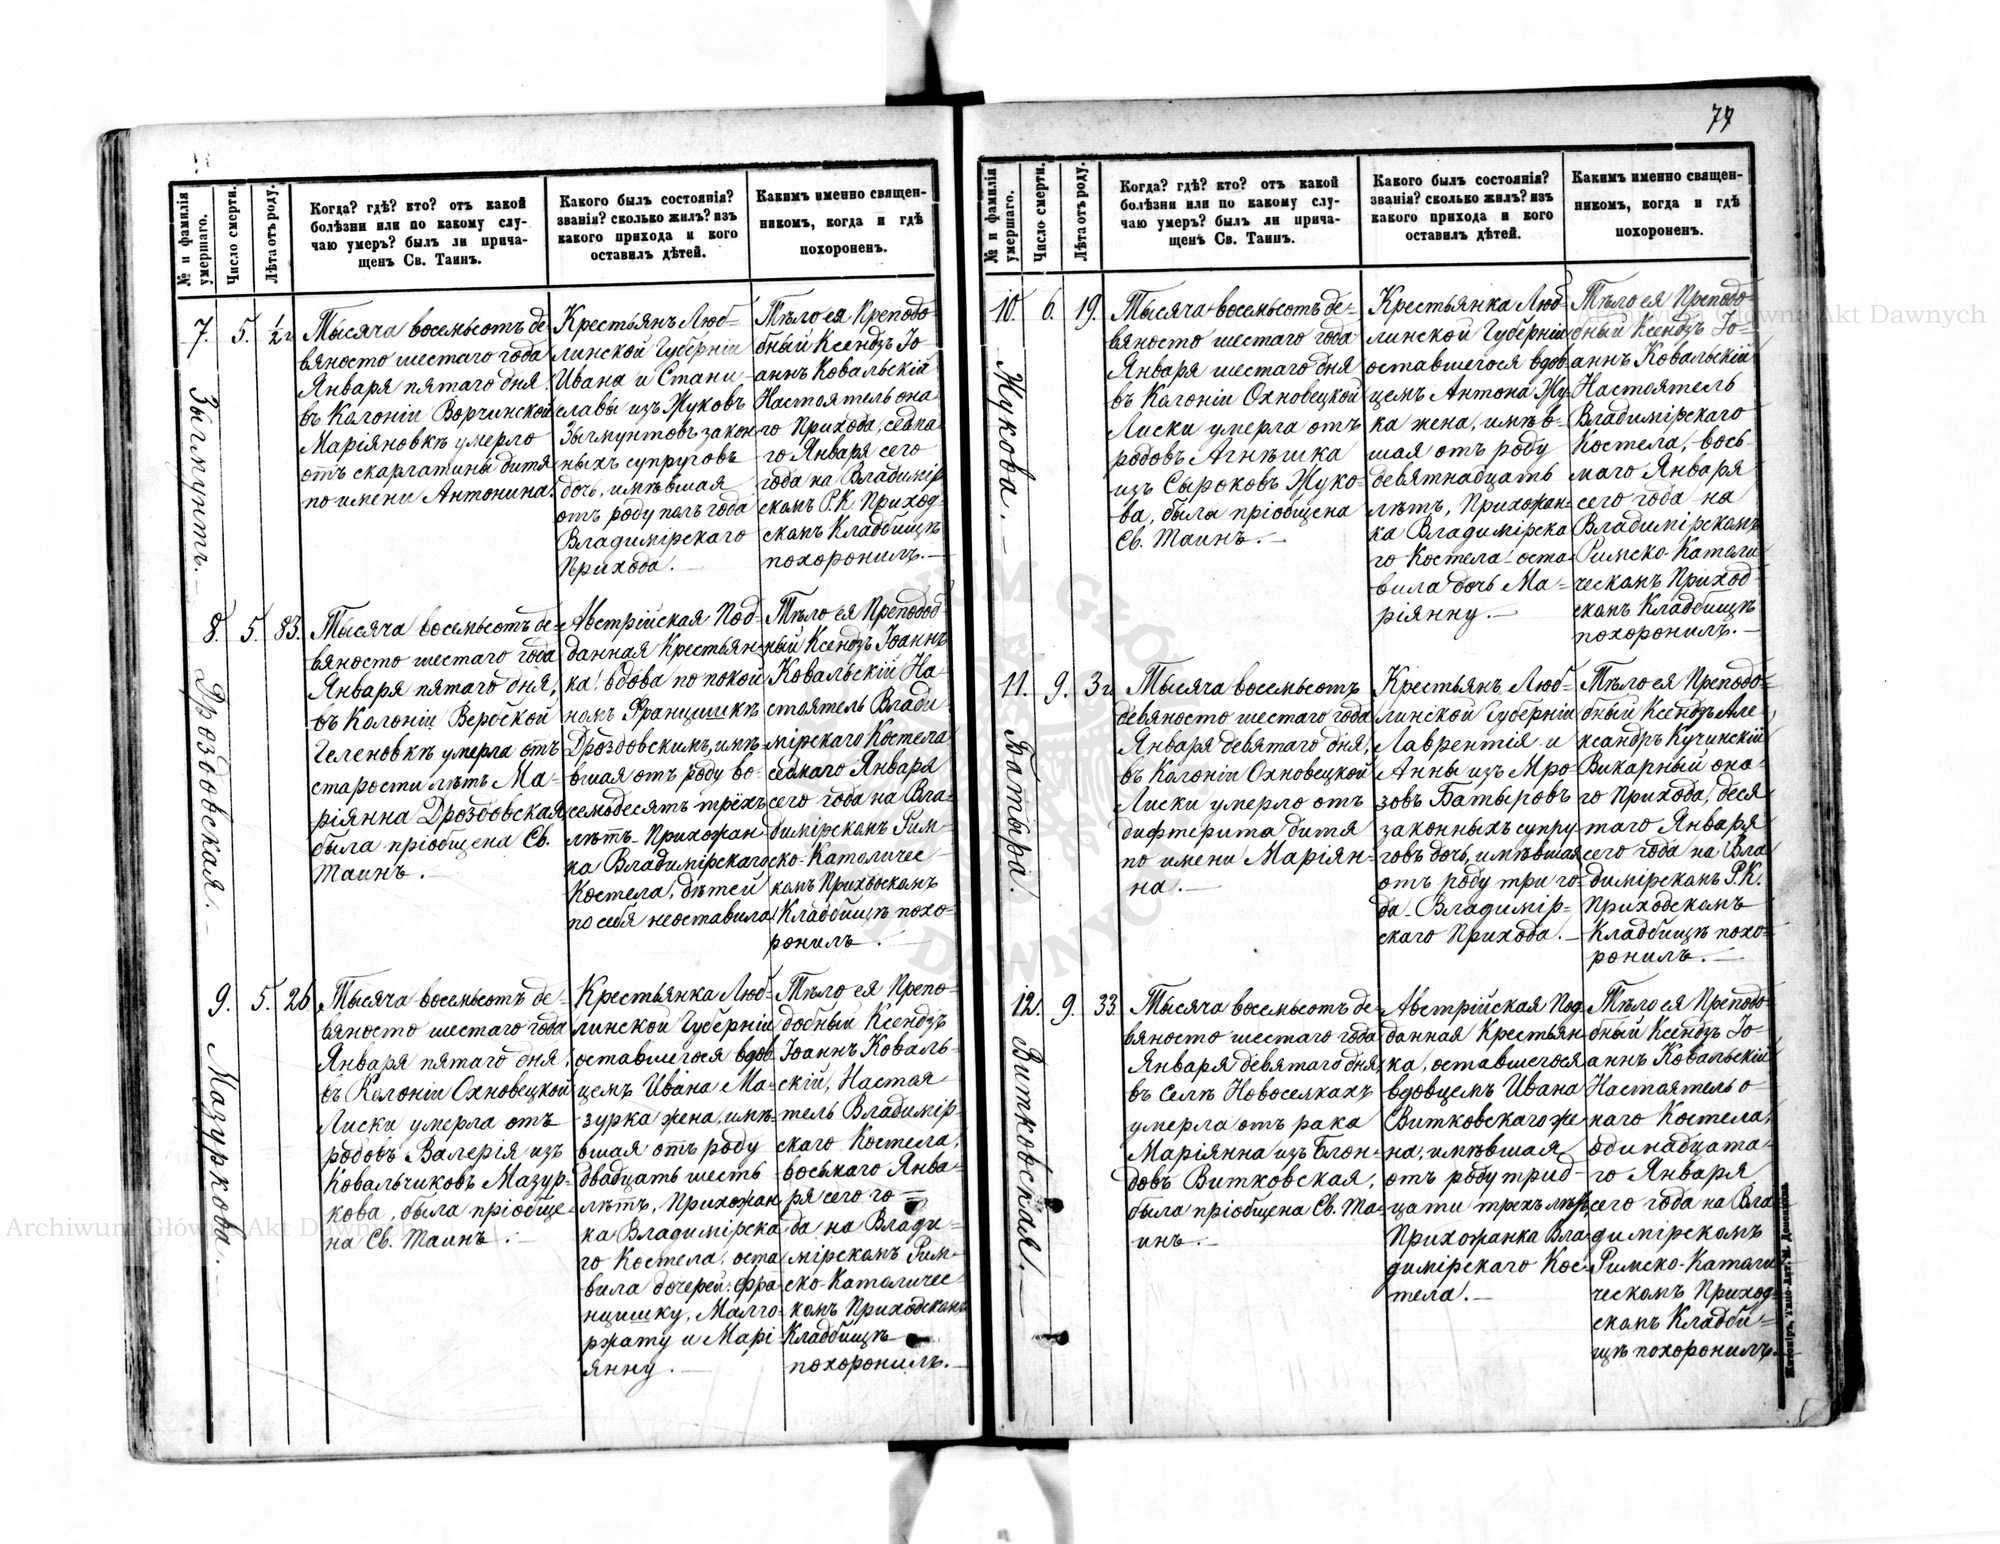 77
№ и фамилія умершаго.
Число смерти.
Лѣта отъ роду.
Когда? гдѣ? кто? отъ какой
болѣзни или по какому слу-
чаю умеръ? былъ ли прича-
щенъ Св. Таинъ.
Какого былъ состоянія?
званія? сколько жилъ? изъ
какого прихода и кого
оставилъ дѣтей.
Какимъ именно священ-
никомъ, когда и гдѣ
похороненъ.
7.
Зыгмунтъ.
5.
½ г
Тысяча восемьсотъ де
вяносто шестаго года
Января пятаго дня
въ Колоніи Ворчинской
Маріяновкѣ умерло
отъ скарлатины дитя
по имени Антонина.
Крестьянъ Люб-
линской Губерніи
Ивана и Стани
славы изъ Жуковъ
Зыгмунтовъ закон
ныхъ супруговъ
дочь, имѣвшая
отъ роду полъ года
Владимірскаго
Прихода.
Тѣло ея Преподо
бный Ксендзъ Іо
аннъ Ковальскій
Настоятель она
го Прихода, седма
го Января сего
года на Владимір
скомъ Р.К. Приход
скомъ Кладбищѣ
похоронилъ.
8.
Дроздовская.
5.
83.
Тысяча восемьсотъ де-
вяносто шестаго года
Января пятаго дня,
въ Колоніи Вербской
Геленовкѣ умерла отъ
старости лѣтъ Ма-
ріянна Дроздовская
была пріобщена Св.
Таинъ.
Австрійская Под-
данная Крестьян-
ка, вдова по покой
номъ Францишкѣ
Дроздовскимъ, имѣ
вшая отъ роду во-
семьдесятъ трёхъ
лѣтъ, Прихожан-
ка Владимірскаго
Костела, дѣтей
по себя неоставила
Тѣло ея Преподоб-
ный Ксендзъ Іоаннъ
Ковальскій На-
стоятель Влади
мірскаго Костела
седмаго Января
сего года на Вла-
димірскомъ Рим-
ско-Католичес
комъ Приходскомъ
Кладбищѣ похо-
ронилъ.
9.
Мазуркова.
5.
26
Тысяча восемьсотъ де-
вяносто шестаго года
Января пятаго дня,
въ Колоніи Охновецкой
Лиски умерла отъ
родовъ Валерія изъ
Ковальчиковъ Мазур-
кова, была пріобще-
на Св. Таинъ.
Крестьянка Люб-
линской Губерніи
оставшегося вдов
цемъ Ивана Ма-
зурка жена, имѣ-
вшая отъ роду
двадцать шесть
лѣтъ, Прихожан
ка Владимірска
го Костела, оста
вила дочерей: Фра-
нцишку, Малго-
ржату и Марі
янну.
Тѣло ея Препо-
добный Ксендзъ
Іоаннъ Коваль-
скій, Настоя
тель Владимір-
скаго Костела,
восьмаго Янва-
ря сего го-
да на Влади-
мірскомъ Рим-
ско-Католичес
комъ Приходскомъ
Кладбищѣ
похоронилъ.
№ и фамилія умершаго.
Число смерти.
Лѣта отъ роду.
Когда? гдѣ? кто? отъ какой
болѣзни или по какому слу-
чаю умеръ? былъ ли прича-
щенъ Св. Таинъ.
Какого былъ состоянія?
званія? сколько жилъ? изъ
какого прихода и кого
оставилъ дѣтей.
Какимъ именно священ-
никомъ, когда и гдѣ
похороненъ.
10.
Жукова.
6.
19.
Тысяча восемьсотъ де-
вяносто шестаго года
Января шестаго дня
въ Колоніи Охновецкой
Лиски умерла отъ
родовъ Агнѣшка
изъ Сыроковъ Жуко-
ва, была пріобщена
Св. Таинъ.
Крестьянка Люб
линской Губерніи
оставшегося вдов
цемъ Антона Жу
ка жена, имѣв-
шая отъ роду
девятнадцать
лѣтъ, Прихожан
ка Владимірска
го Костела, оста-
вила дочь Ма-
ріянну.
Тѣло ея Преподо-
бный Ксендзъ Іо-
аннъ Ковальскій
Настоятель
Владимірскаго
Костела, вось-
маго Января
сего года на
Владимірскомъ
Римско-Католи
ческомъ Приход-
скомъ Кладбищѣ
похоронилъ.
11.
Батыра.
9.
3 г
Тысяча восемьсотъ
девяносто шестаго года
Января девятаго дня,
въ Колоніи Охновецкой
Лиски умерло отъ
дифтерита дитя
по имени Маріян-
на.
Крестьянъ Люб-
линской Губерніи
Лаврентія и
Анны изъ Мро
зовъ Батыровъ
законныхъ супру
говъ дочь, имѣвшая
отъ роду три го-
да Владимір-
скаго Прихода.
Тѣло ея Преподо-
бный Ксендзъ Але-
ксандръ Кучинскій
Викарный она-
го Прихода, деся
таго Января
сего года на Вла
димірскомъ Р.К.
Приходскомъ
Кладбищѣ похо-
ронилъ.
12.
Витковская.
9.
33.
Тысяча восемьсотъ де-
вяносто шестаго года
Января девятаго дня,
въ Селѣ Новоселкахъ
умерла отъ рака
Маріянна изъ Блон-
довъ Витковская,
была пріобщена Св. Та-
инъ.
Австрійская Под
данная Крестьян
ка, оставшегося
вдовцемъ Ивана
Витковскаго же
на, имѣвшая
отъ роду трид-
цати трехъ лѣтъ,
Прихожанка Вла-
димірскаго Кос-
тела.
Тѣло ея Преподо
бный Ксендзъ Іо-
аннъ Ковальскій
Настоятель о-
наго Костела,
одинадцата-
го Января
сего года на Вла
димірскомъ
Римско-Католи
ческомъ Приход-
скомъ Кладби-
щѣ похоронилъ.
Archiwum Główne Akt Dawnych
Archiwum Główne Akt Dawnych